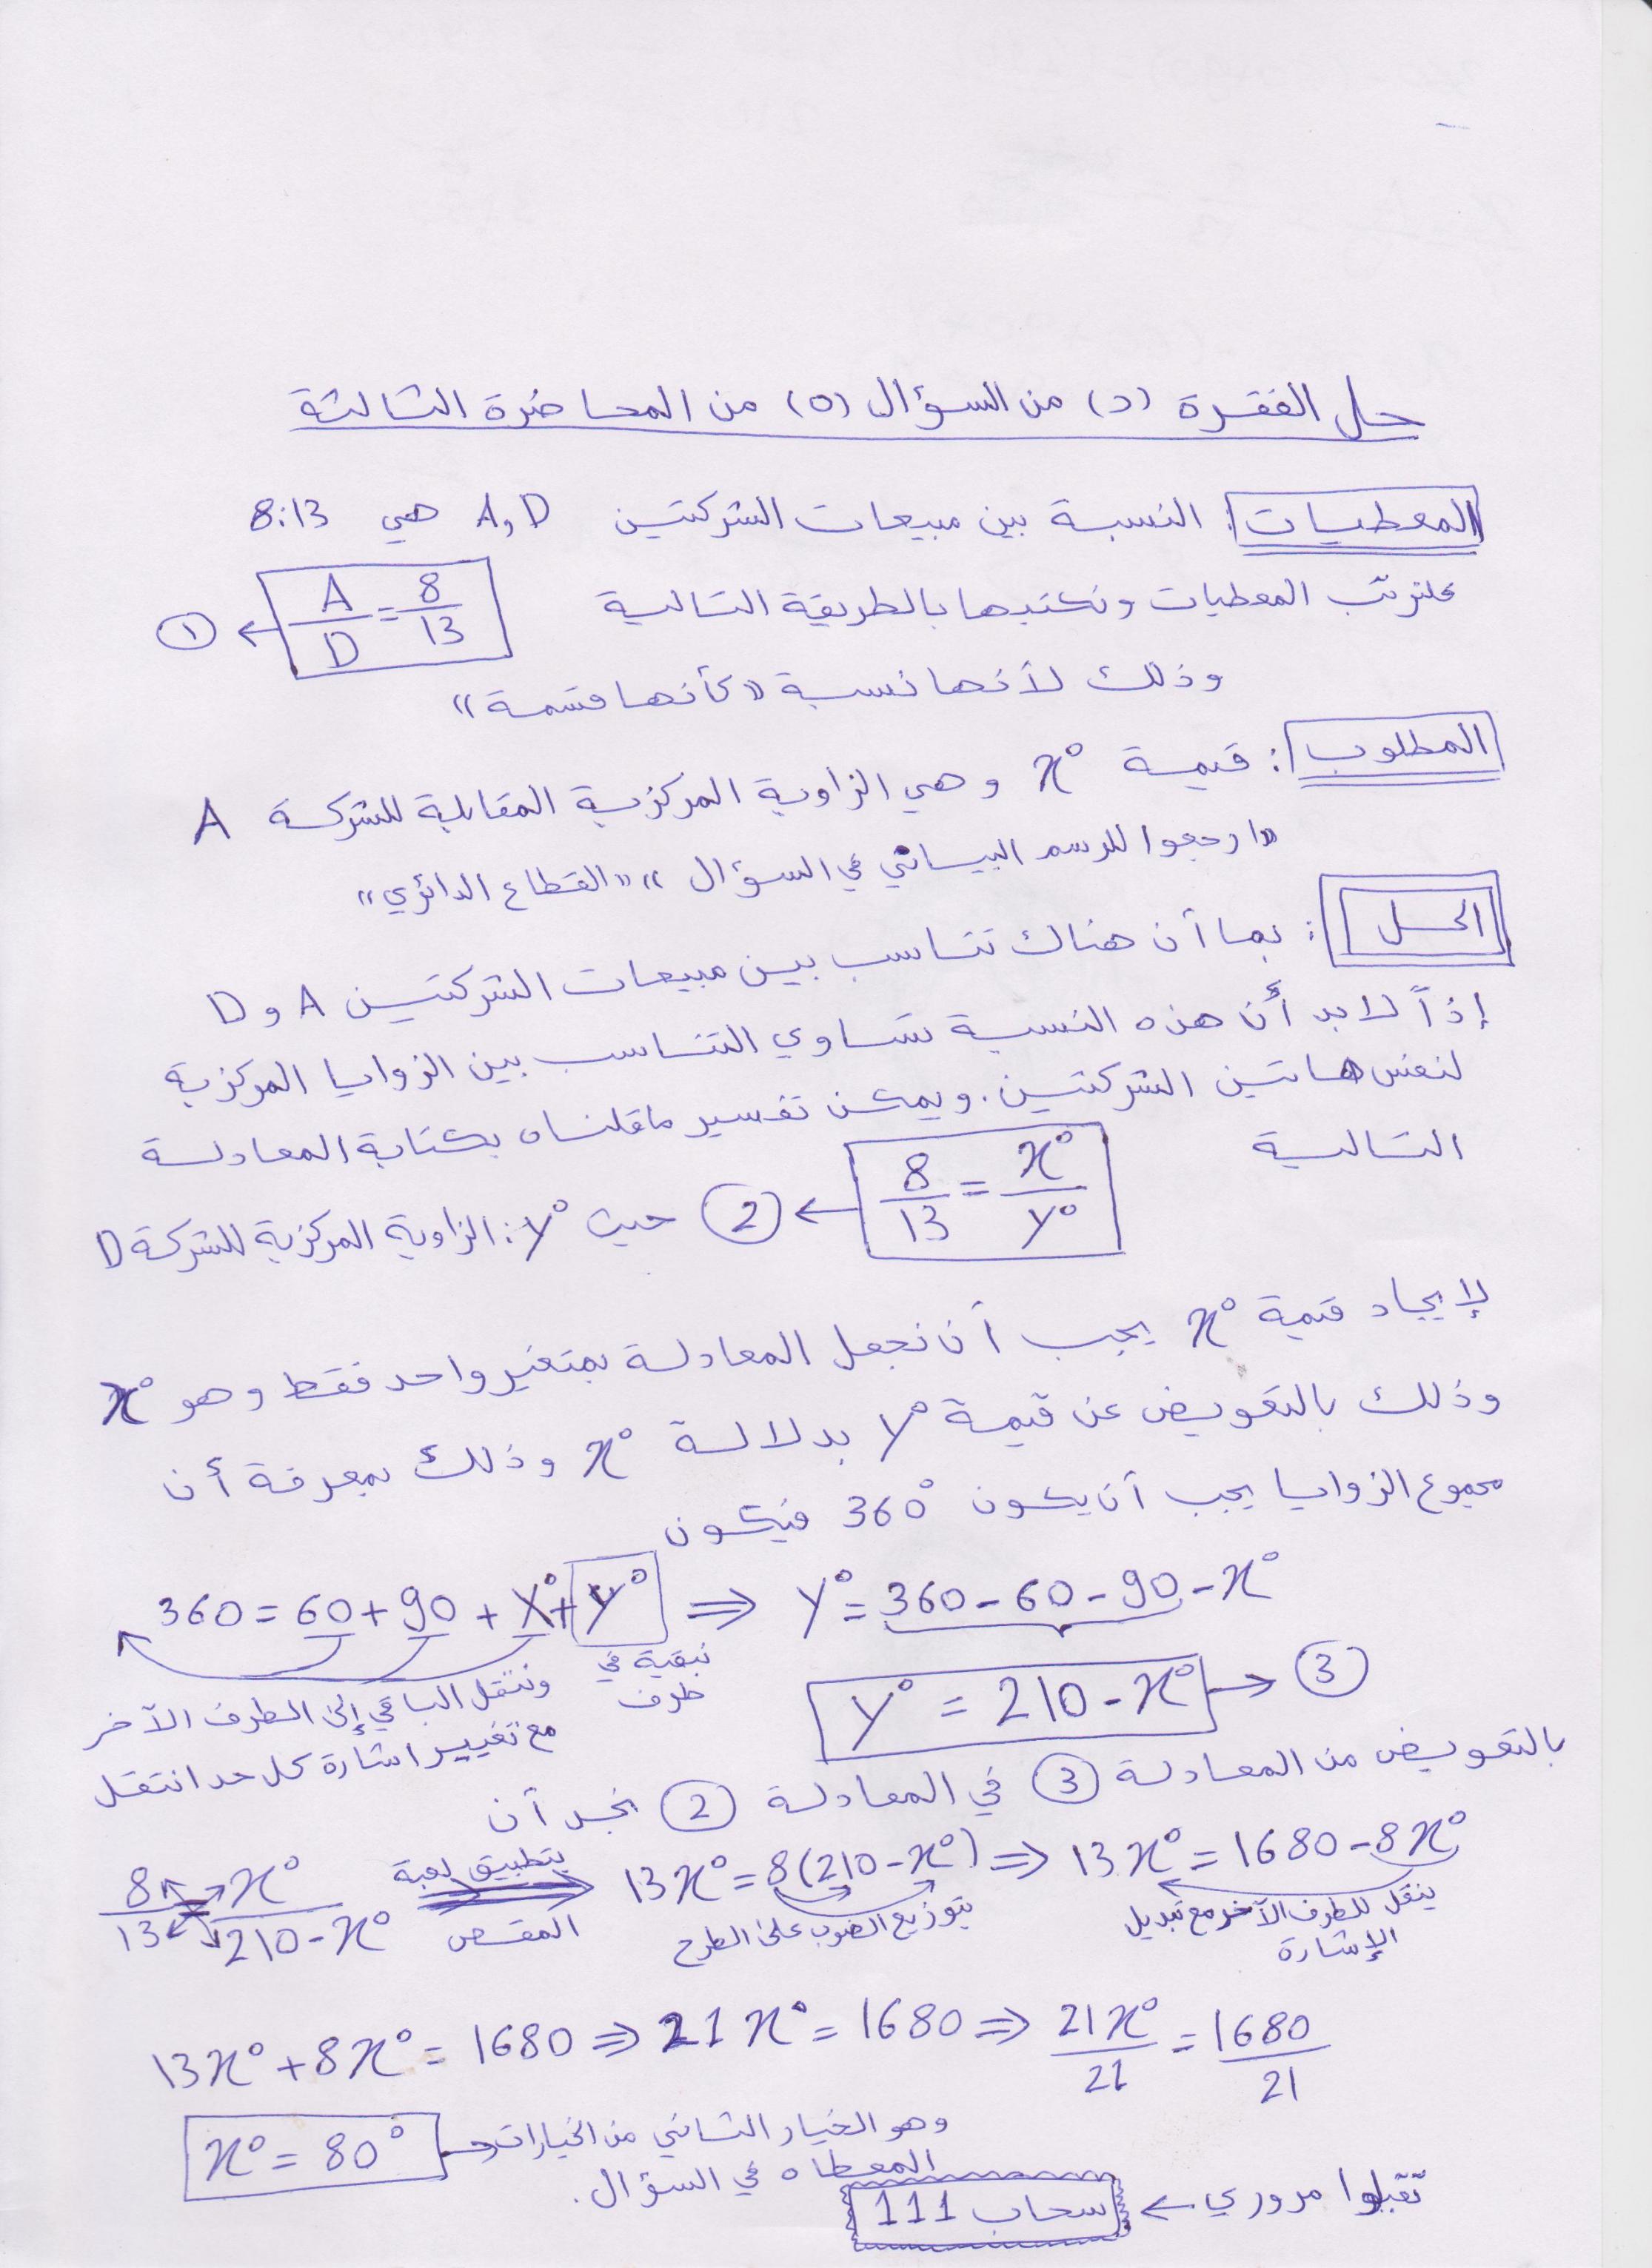 حل الفقرة (د) من السؤال (٥) من المحاضرة الثالثة
المعطيات: النسبة بين مبيعات الشركتين A, D هي 8:13
فلنرتب المعطيات ونكتبها بالطريقة التالية A/D = 8/13 ← ①
وذلك لأنها نسبة «كأنها قسمة»
المطلوب: قيمة x° وهي الزاوية المركزية المقابلة للشركة A
«ارجعوا للرسم البياني في السؤال» «القطاع الدائري»
الحل: بما أن هناك تناسب بين مبيعات الشركتين A و D
إذاً لابد أن هذه النسبة تساوي التناسب بين الزوايا المركزية
لنفس هاتين الشركتين. ويمكن تفسير ماقلناه بكتابة المعادلة
التالية 8/13 = x°/y° ← ② حيث y°: الزاوية المركزية للشركة D
لإيجاد قيمة x° يجب أن نجعل المعادلة بمتغير واحد فقط وهو x°
وذلك بالتعويض عن قيمة y° بدلالة x° وذلك بمعرفة أن
مجموع الزوايا يجب أن يكون 360° فيكون
360 = 60 + 90 + x° + y° ⇒ y° = 360 - 60 - 90 - x°
نبقيه في
طرف
وننقل الباقي إلى الطرف الآخر
مع تغيير اشارة كل حد انتقل
y° = 210 - x° → ③
بالتعويض من المعادلة ③ في المعادلة ② نجد أن
8/13 = x°/210-x° ⇒ 13x° = 8(210-x°) ⇒ 13x° = 1680 - 8x°
بتطبيق لعبة
المقص
بتوزيع الضرب على الطرح
ينقل للطرف الآخر مع تبديل
الإشارة
13x° + 8x° = 1680 ⇒ 21x° = 1680 ⇒ 21x°/21 = 1680/21
x° = 80° → وهو الخيار الثاني من الخيارات
المعطاه في السؤال.
تقبلوا مروري ← سحاب 111